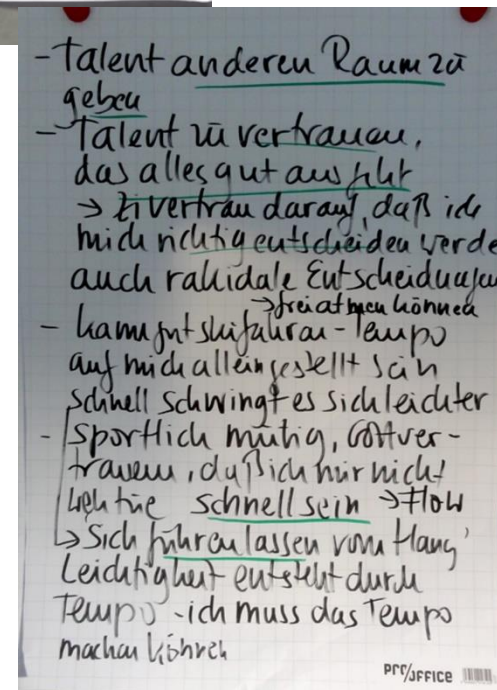 - Talent anderen Raum zu
geben
- Talent zu vertrauen,
das alles gut aus geht
→ vertrau darauf, daß ich
mich richtig entscheiden werde
auch rakidale Entscheidungen
→ frei atmen können
- kann gut skifahren - Tempo
auf mich allein gestellt sein
schnell schwingt es sich leichter
- sportlich mutig, Gottver-
trauen, daß ich mir nicht
weh tue schnell sein → Flow
↳ Sich führen lassen vom Hang
Leichtigkeit entsteht durch
Tempo - ich muss das Tempo
machen können
pro/office